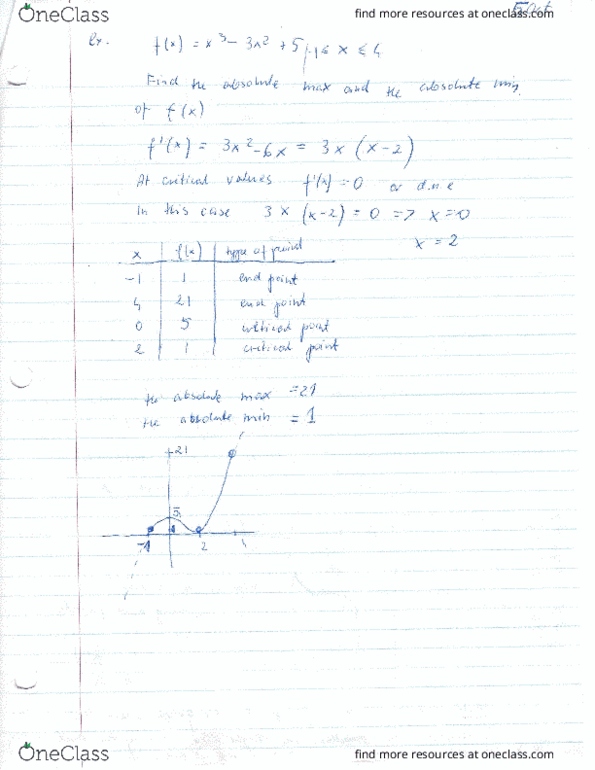 OneClass
find more resources at oneclass.com
Ex. f(x) = x³ - 3x² + 5, -1 ≤ x ≤ 4
Find the absolute max and the absolute min
of f(x)
f'(x) = 3x² - 6x = 3x (x-2)
At critical values f'(x) = 0 or d.n.e
In this case 3x (x-2) = 0 => x=0
x = 2
x f(x) type of point
-1 1 end point
4 21 end point
0 5 critical point
2 1 critical point
the absolute max = 21
the absolute min = 1
21
5
-1 2 4
OneClass
find more resources at oneclass.com